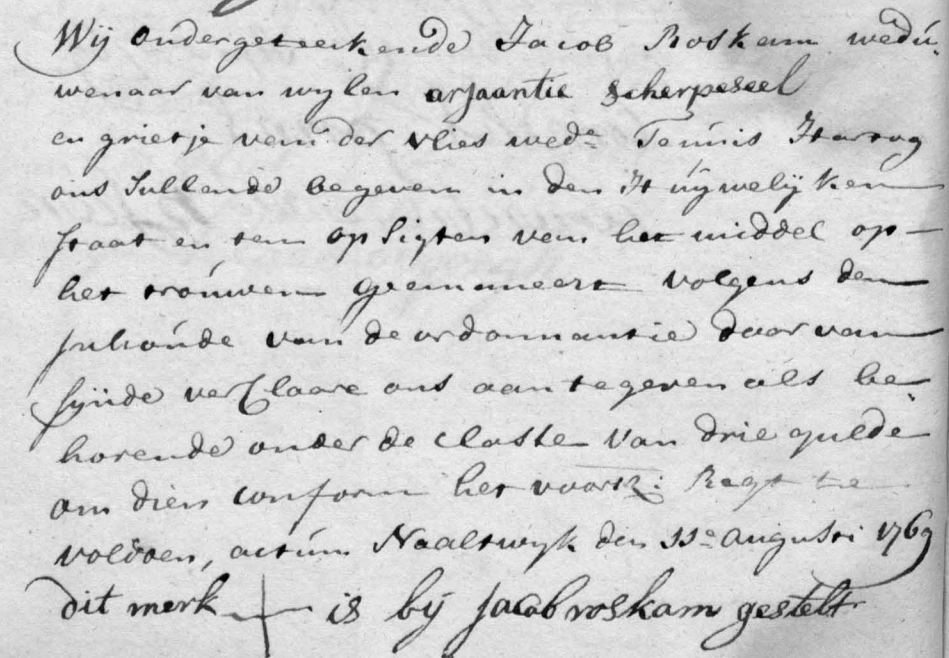 Wij ondergeteekende Jacob Roskam wedu„
wenaar van wylen arjaantie Scherpeseel
en grietje van der vlies wede Teunis Hartog
ons Sullende begeven in den Huywelijken
staat en ten opsigten van het middel op
het trouwen geemaneert volgens den
inhoude van de ordonnantie daar van
sijnde verklaare ons aan te geven als be
horende onder de classe van drie gulde
om dien conform het voorsz: Regt te
voldoen, actum Naaltwyk den 11e augusti 1769
dit merk + is bij Jacob roskam gestelt